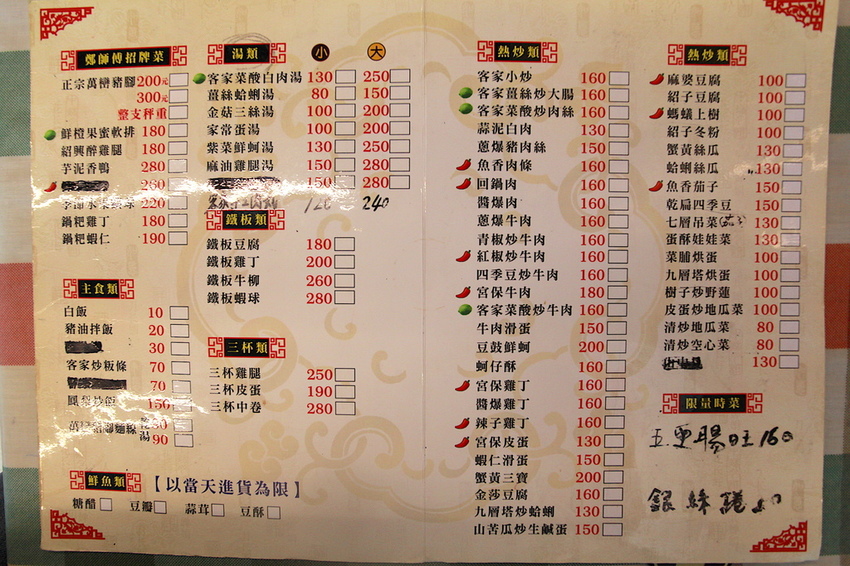 鄭師傅招牌菜
正宗萬巒豬腳200元
300元
整支秤重
鮮橙果蜜軟排 180
紹興醉雞腿 180
芋泥香鴨 280
260
220
鍋粑雞丁 180
鍋粑蝦仁 190
主食類
白飯 10
豬油拌飯 20
30
客家炒粄條 70
70
鳳梨炒飯 150
湯 90
鮮魚類【以當天進貨為限】
糖醋 豆瓣 蒜茸 豆酥
湯類 小 大
客家菜酸白肉湯 130 250
薑絲蛤蜊湯 80 150
金菇三絲湯 100 200
家常蛋湯 100 200
紫菜鮮蚵湯 130 250
麻油雞腿湯 150 280
150 280
120 240
鐵板類
鐵板豆腐 180
鐵板雞丁 200
鐵板牛柳 260
鐵板蝦球 280
三杯類
三杯雞腿 250
三杯皮蛋 190
三杯中卷 280
熱炒類
客家小炒 160
客家薑絲炒大腸 160
客家菜酸炒肉絲 160
蒜泥白肉 130
蔥爆豬肉絲 150
魚香肉條 160
回鍋肉 160
醬爆肉 160
蔥爆牛肉 160
青椒炒牛肉 160
紅椒炒牛肉 160
四季豆炒牛肉 160
宮保牛肉 180
客家菜酸炒牛肉 160
牛肉滑蛋 150
豆鼓鮮蚵 200
蚵仔酥 160
宮保雞丁 160
醬爆雞丁 160
辣子雞丁 160
宮保皮蛋 130
蝦仁滑蛋 150
蟹黃三寶 200
金莎豆腐 160
九層塔炒蛤蜊 130
山苦瓜炒生鹹蛋 150
熱炒類
麻婆豆腐 100
紹子豆腐 100
螞蟻上樹 100
紹子冬粉 100
蟹黃絲瓜 130
蛤蜊絲瓜 130
魚香茄子 150
乾扁四季豆 150
七層吊菜 130
蛋酥娃娃菜 130
菜脯烘蛋 100
九層塔烘蛋 100
樹子炒野蓮 100
皮蛋炒地瓜菜 100
清炒地瓜菜 80
清炒空心菜 80
130
限量時菜
五更腸旺160
銀絲